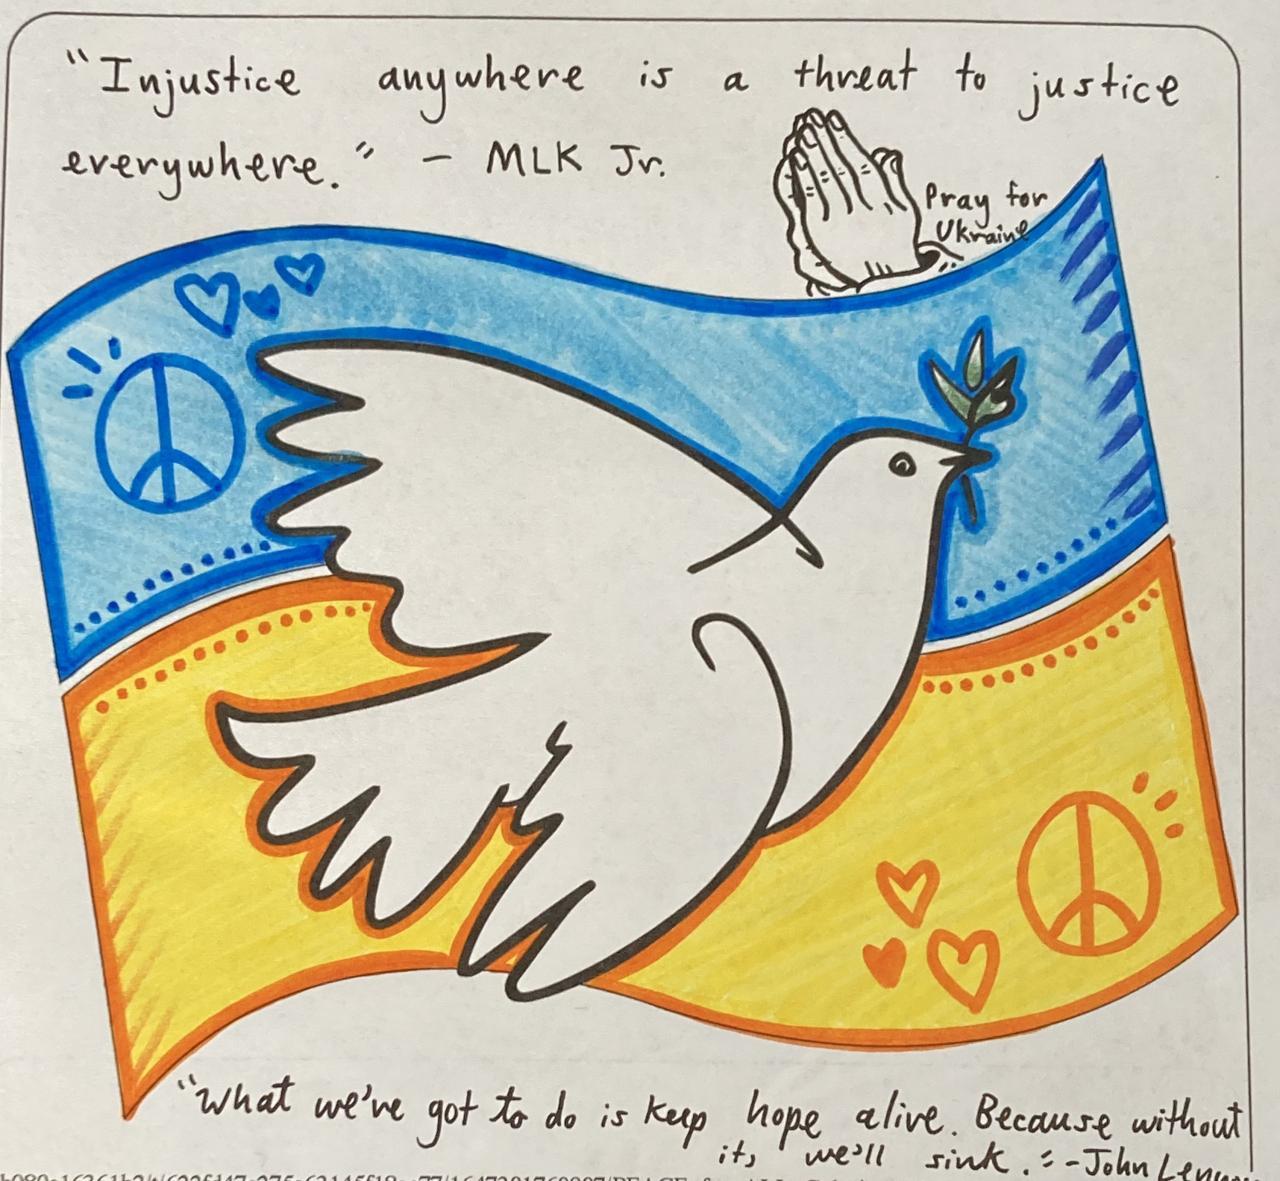 "Injustice anywhere is a threat to justice
everywhere." - MLK Jr.
Pray for
Ukraine
"What we've got to do is keep hope alive. Because without
it, we'll sink." - John